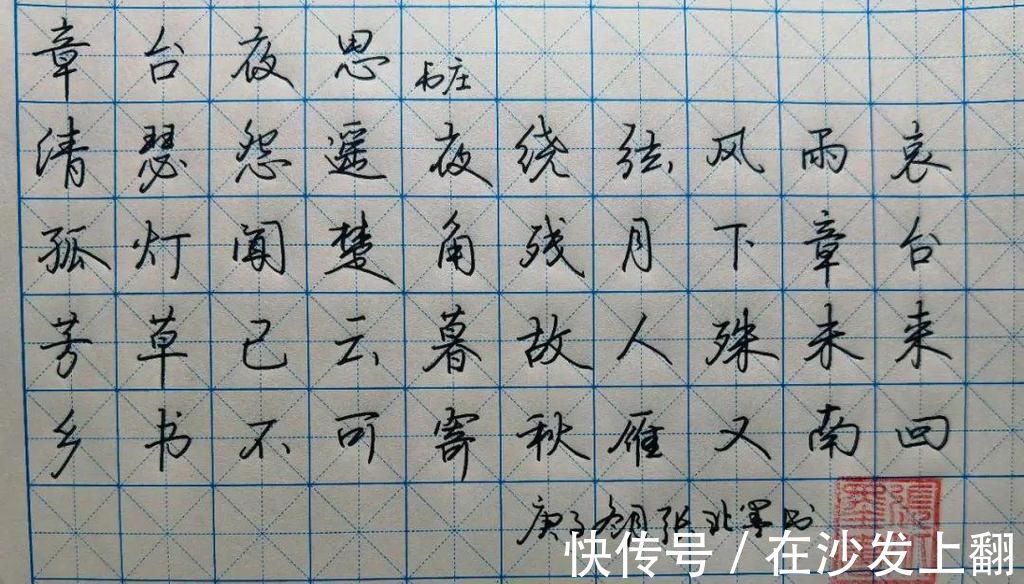 章台夜思 韦庄
清瑟怨遥夜绕弦风雨哀
孤灯闻楚角残月下章台
芳草已云暮故人殊未来
乡书不可寄秋雁又南回
庚子月张书
快传号/在沙发上翻